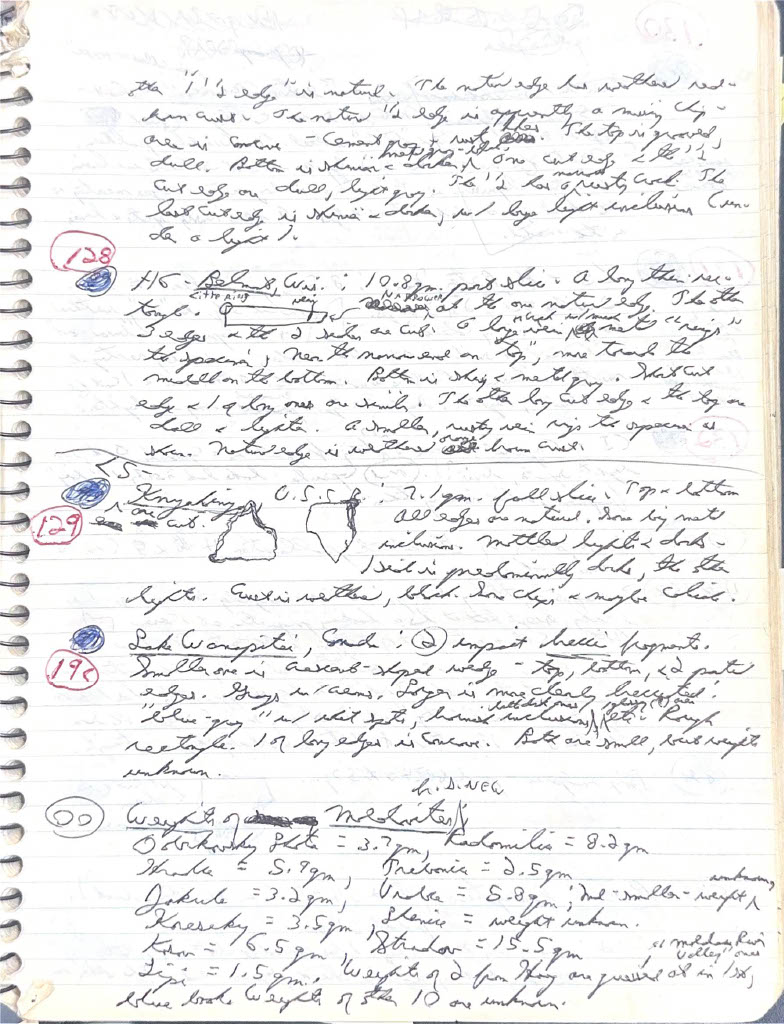 the "1 1/2 edge" is natural. The natural edge has weathered red-
brown crust. The natural 1/2 edge is apparently a missing chip -
area is concave - cement gray + rusty. The top is grooved,
dull. Bottom is shinier & darker, metal gray-. One cut edge & the 1/2
cut edge are dull, light gray. The 1/2 has a narrow rusty crack. The
last cut edge is shiny & darker, w/ large light inclusion (un-
der a light).
128
H5 - Belmont, Wis.: 10.8 gm. part slice. A long thin rec-
tangle. at the one natural edge. The other
3 edges & the 2 sides are cut. A large vein w/ much metal "rings"
the specimen, near the narrow end on "top", more toward the
middle on the bottom. Bottom is shiny & metal gray. Short cut
edge & 1 of long ones are similar. The other long cut edge & the top are
dull & lighter. A smaller, rusty vein rings the specimen as
shown. Natural edge is weathered orange brown crust.
L5 -
Knyahinya, U.S.S.R.: 2.1 gm. full slice. Top & bottom
are cut. All edges are natural. Some big metal
129
inclusions. Mottled lights & darks -
1 side is predominantly dark, the other
light. Crust is weathered, black. Some chips & maybe collide.
Lake Wanapitei, Canada: (2) impact breccia fragments.
19c
Smaller one is crescent-shaped wedge - top, bottom, & 2 parts
edges. Grays w/ creams. Larger is more clearly brecciated:
"blue-gray" w/ white spots, brownish inclusions, etc. Rough
rectangle. 1 of long edges is concave. Both are small, but weights
unknown.
h. S. NEW
00 Weights of Moldavites:
Dobrkovsky Lhota = 3.7 gm, Radomilice = 8.2 gm
Hraba = 5.9 gm, Trebonin = 2.5 gm
Jakule = 3.2 gm, Vrabce = 5.8 gm; 2nd - smaller - weight unknown,
Koroseky = 3.5 gm, Slavce = weight unknown.
Kosov = 6.5 gm, Stradov = 15.5 gm, "Moldau River
Valley" ones
Lipi = 1.5 gm. Weights of 2 from are guessed at in 1st,
blue book. Weights of other 10 are unknown.